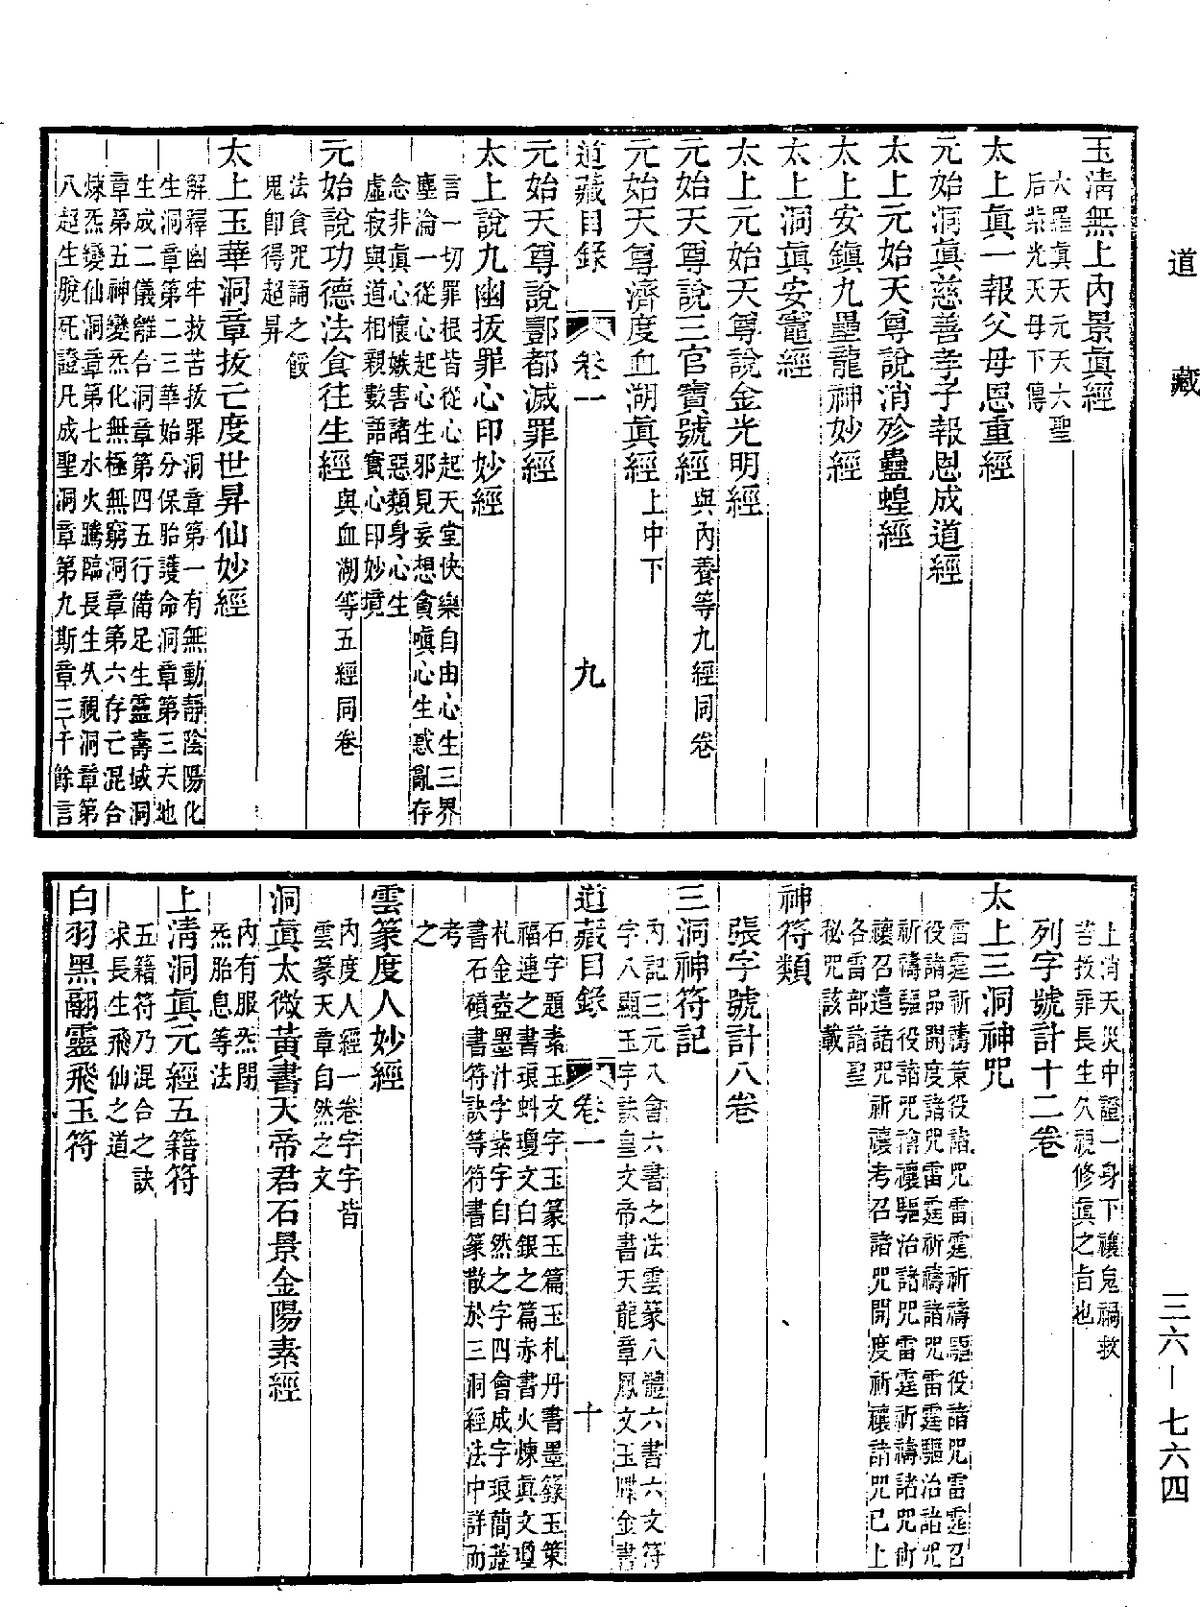 道藏
玉淸無上內景眞經
大羅眞天元天六聖
后紫光天母下傳
太上眞一報父母恩重經
元始洞眞慈善孝子報恩成道經
太上元始天尊說消殄蟲蝗經
太上安鎮九壘龍神妙經
太上洞眞安竈經
太上元始天尊說金光明經
元始天尊說三官寶號經與內養等九經同卷
元始天尊濟度血湖眞經上中下
道藏目錄 卷一 九
元始天尊說酆都滅罪經
太上說九幽拔罪心印妙經
言一切罪根皆從心起天堂快樂自由心生三界
塵淪一從心起心生邪見妄想貪嗔心生惑亂存
念非眞心懷嫉害諸惡類身心生
虛寂與道相親數語實心印妙境
元始說功德法食往生經與血湖等五經同卷
法食咒誦之餒
鬼卽得超昇
太上玉華洞章拔亡度世昇仙妙經
解釋幽牢救苦拔罪洞章第一有無動靜陰陽化
生洞章第二三華始分保胎護命洞章第三天地
生成二儀離合洞章第四五行備足生靈壽域洞
章第五神變炁化無極無窮洞章第六存亡混合
煉炁變仙洞章第七水火騰臨長生久視洞章第
八超生脫死證凡成聖洞章第九斯章三千餘言
上消天災中證一身下禳鬼禍救
苦拔罪長生久視修眞之旨也
列字號計十二卷
太上三洞神咒
雷霆祈禱策役諸咒雷霆祈禱驅役諸咒雷霆召
役諸品開度諸咒雷霆祈禱諸咒雷霆驅治諸咒
祈禱驅役諸咒禬禳驅治諸咒雷霆祈禱諸咒祈
禳召遣諸咒祈禳考召諸咒開度祈禳諸咒已上
各雷部諸聖
秘咒該載
神符類
張字號計八卷
三洞神符記
內記三元八會六書之法雲篆八體六書六文符
字八顯玉字訣皇文帝書天龍章鳳文玉牒金書
道藏目錄 卷一 十
石字題素玉文字玉篆玉篇玉札丹書墨籙玉策
福連之書琅虯瓊文白銀之篇赤書火煉眞文瓊
札金壺墨汁字紫字自然之字四會成字琅簡蕋
書石磧書符訣等符書篆散於三洞經法中詳而
考
之
雲篆度人妙經
內度人經一卷字字皆
雲篆天章自然之文
洞眞太微黃書天帝君石景金陽素經
內有服炁閉
炁胎息等法
上淸洞眞元經五籍符
五籍符乃混合之訣
求長生飛仙之道
白羽黑翮靈飛玉符
三六—七六四